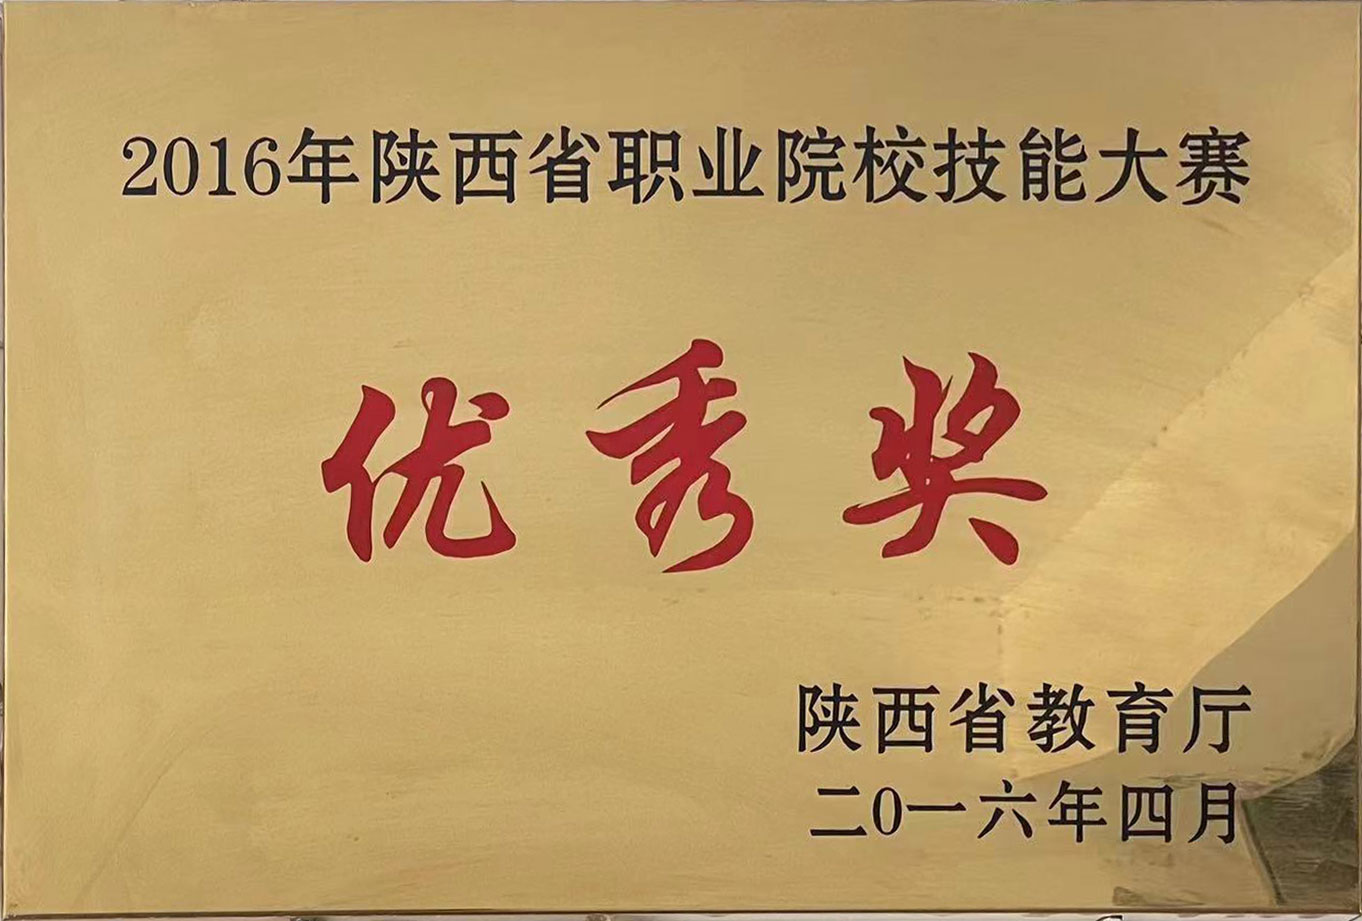 2016年陕西省职业院校技能大赛
优秀奖
陕西省教育厅
二0一六年四月